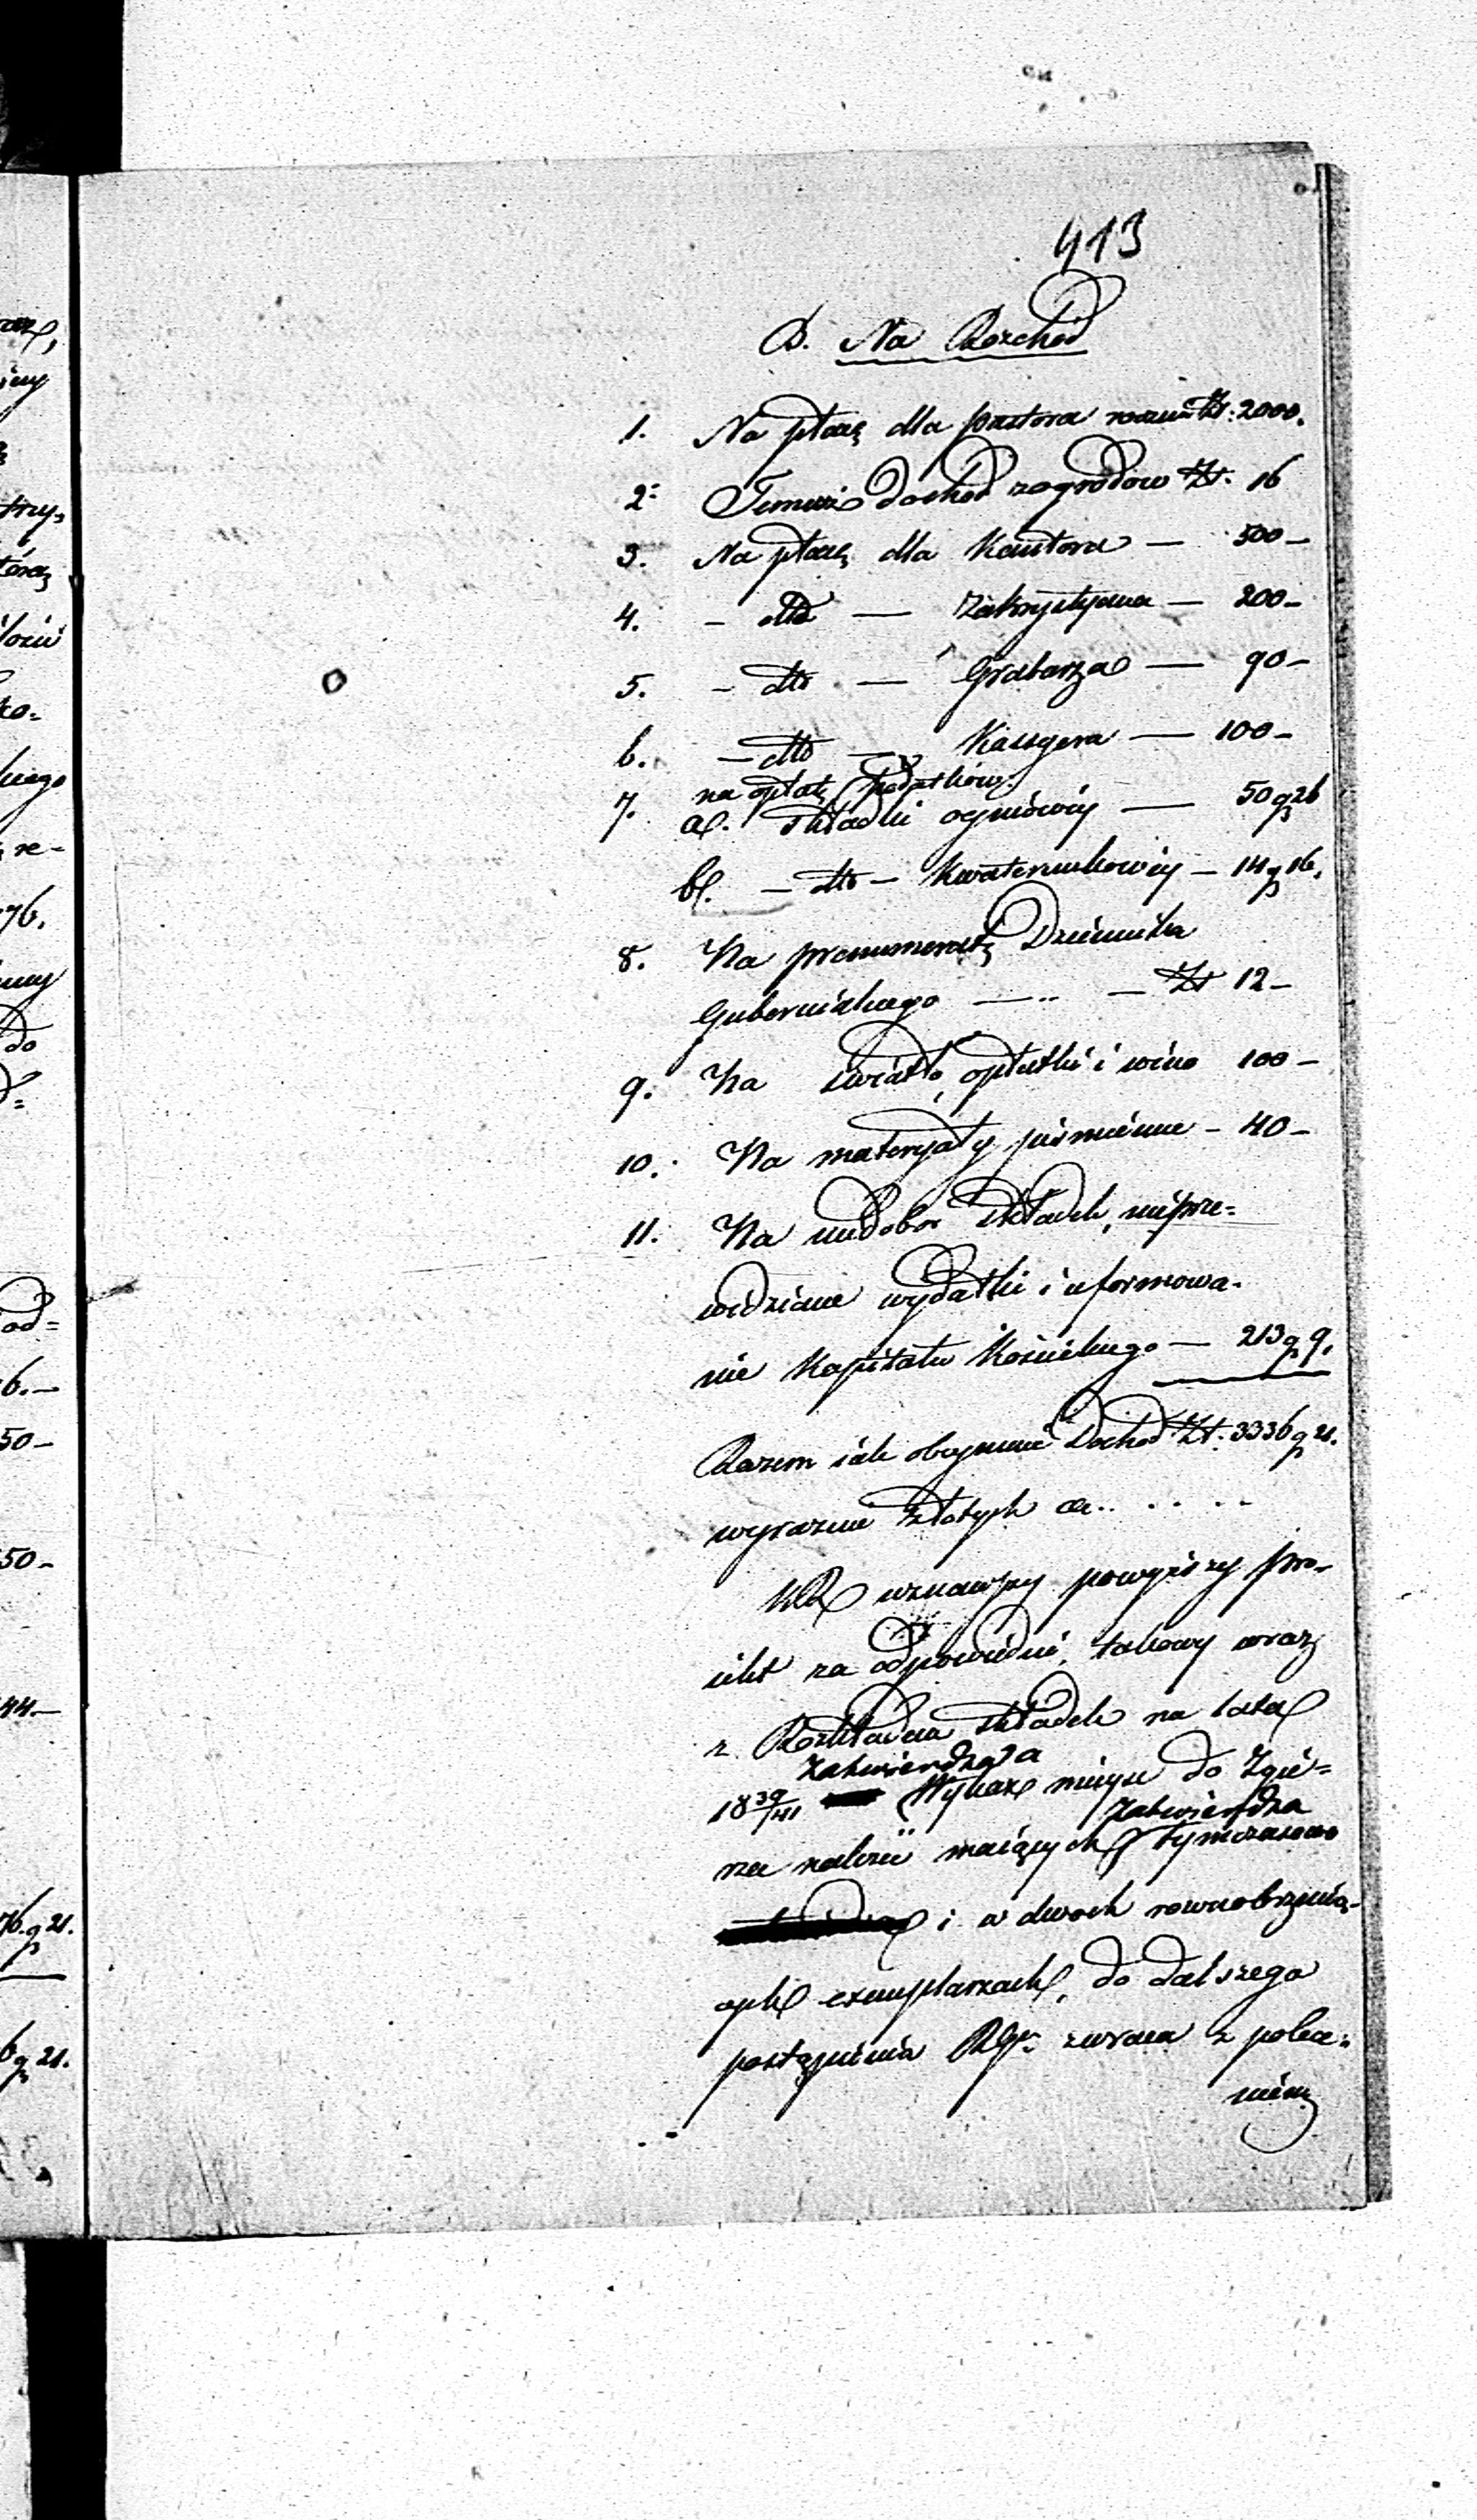 413
B. Na Rozchód
1. Na płacę dla pastora rocznie Zł. 2000.
2. Temuż dochód z ogrodów Zł. 16
3. Na płacę dla Kantora — 500 —
4. — dtto — Zakrystyana — 200 —
5. — dtto — Grabarza — 90 —
6. — dtto — Kassyera — 100 —
7. na opłatę podatków.
a/. składki ogniowéy — 50 g 26
b/. — dtto — Kwaterunkowéy — 14 g 16.
8. Na prenumeratę Dziennika
Gubernialnego — .. — Zł 12 —
9. Na światło, opłatki i wino 100 —
10. Na materyały piśmienne — 40 —
11. Na niedobor składek, nieprze=
widziane wydatki i uformowa-
nie Kapitału Kościelnego — 213 g 9.
Razem iak obeymuie Dochod Zł. 3336 g 21.
wyraznie Złotych .. .. ..
uznawszy powyższy pro-
iekt za odpowiedni, takowy wraz
z Rozkładem składek na lata
zatwierdza a
18 39/41 Wykaz mieysc do Zgie=
zatwierdza
rza należeć maiących tymczasowo
i w dwoch rownobrzmią-
cych exemplarzach, do dalszego
postąpienia zwraca z polece=
niem
raz,
iny
trzy=
tóraz
łozić
ko=
kiego
re-
76.
do
od=
6. —
50 —
50 —
44 —
76 g 21.
6 g 21.